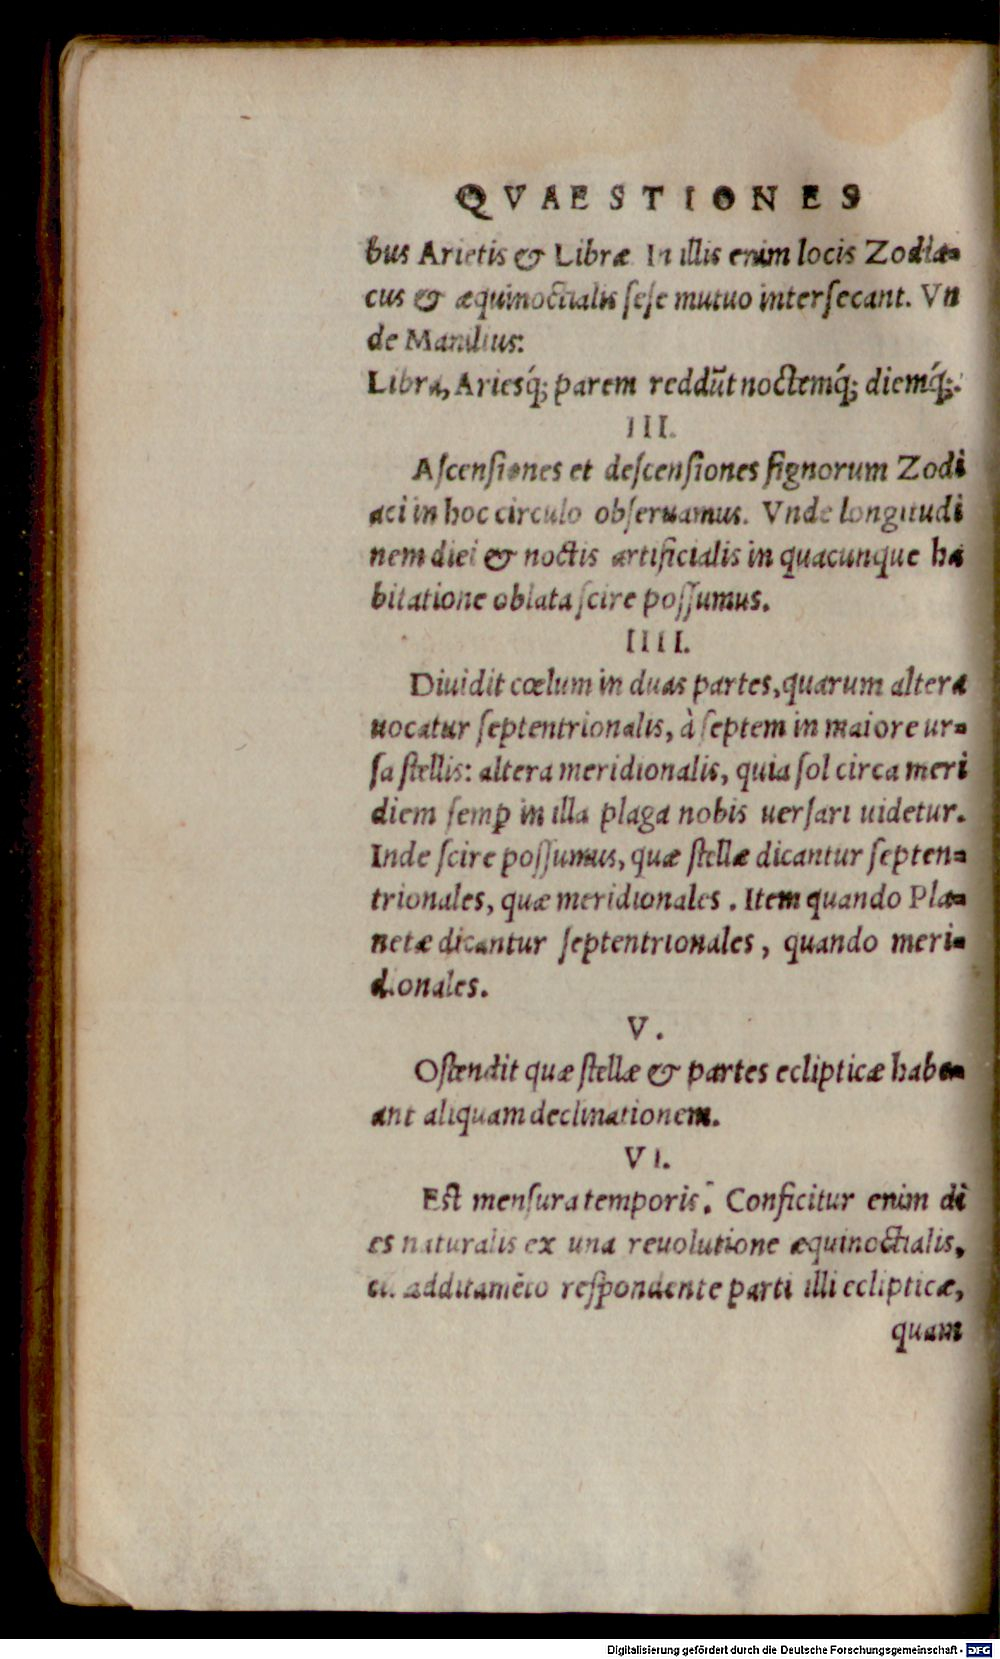 QVAESTIONES
bus Arietis & Libræ In illis enim locis Zodia-
cus & æquinoctialis ſeſe mutuo interſecant. Vn
de Manilius:
Libra, Ariesq́; parem reddũt noctemq́; diemq́;.
III.
Aſcenſiones et deſcenſiones ſignorum Zodi
aci in hoc circulo obſeruamus. Vnde longitudi
nem diei & noctis artificialis in quacunque ha
bitatione oblata ſcire poſſumus.
IIII.
Diuidit cœlum in duas partes, quarum altera
uocatur ſeptentrionalis, à ſeptem in maiore ur-
ſa ſtellis: altera meridionalis, quia ſol circa meri
diem ſemꝑ in illa plaga nobis uerſari uidetur.
Inde ſcire poſſumus, quæ ſtellæ dicantur ſepten-
trionales, quæ meridionales. Item quando Pla-
netæ dicantur ſeptentrionales, quando meri-
dionales.
V.
Oſtendit quæ ſtellæ & partes eclipticæ habe-
ant aliquam declinationem.
VI.
Eſt menſura temporis. Conficitur enim di
es naturalis ex una reuolutione æquinoctialis,
cũ additamẽto reſpondente parti illi eclipticæ,
quam
Digitalisierung gefördert durch die Deutsche Forschungsgemeinschaft - DFG